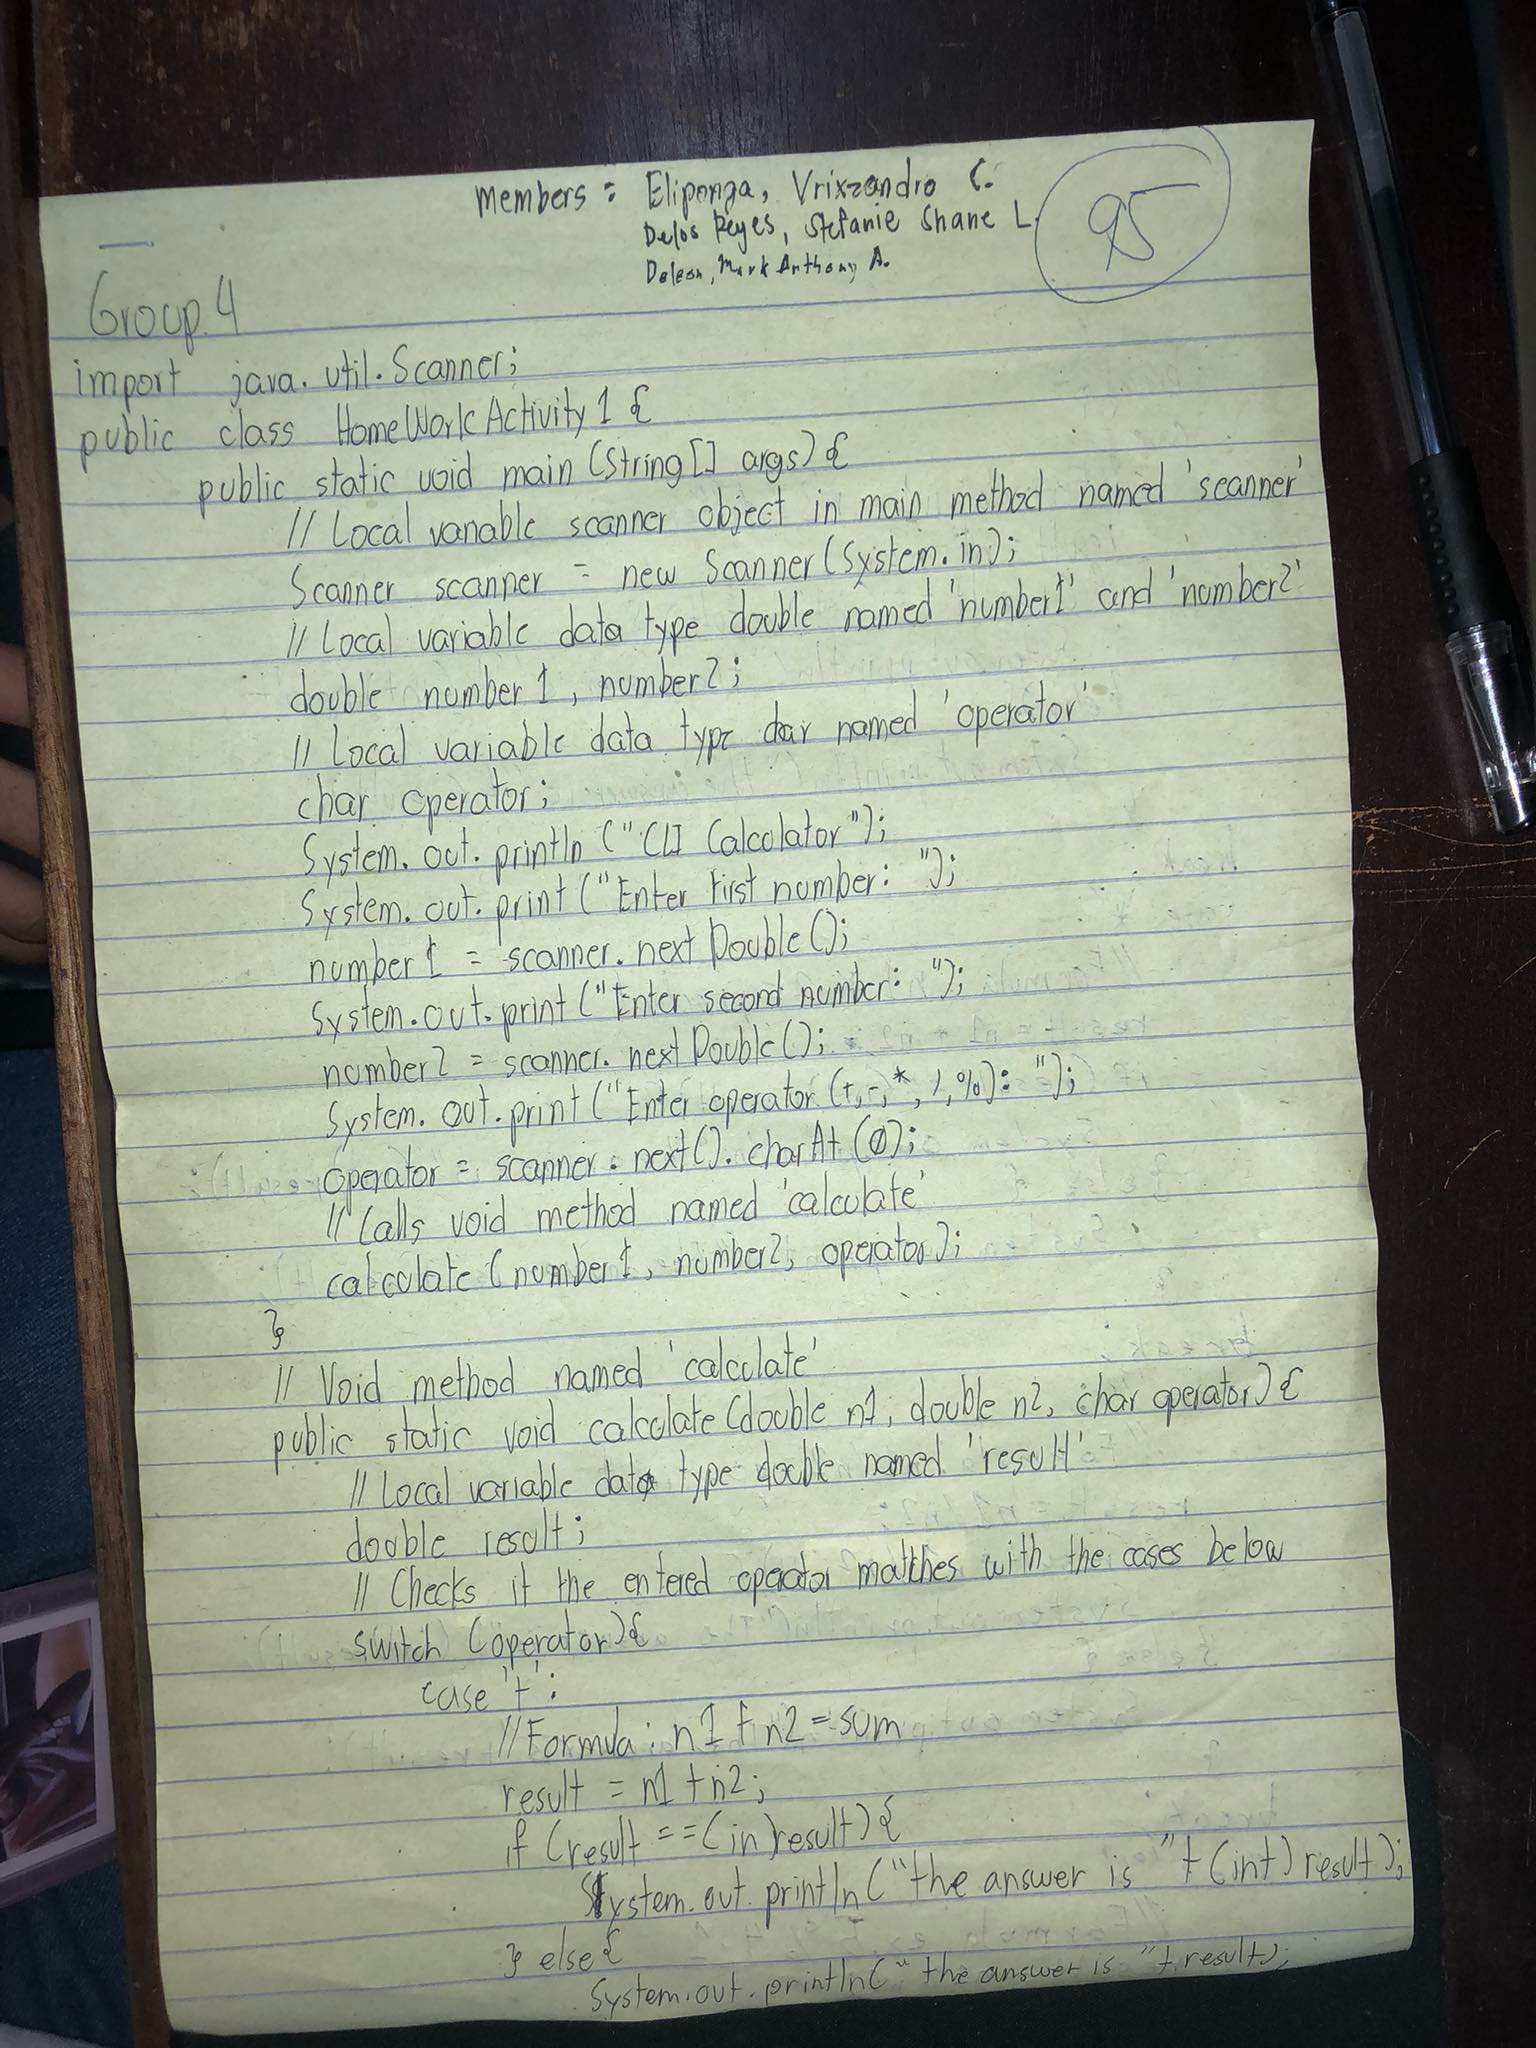 Members : Eliponga, Vrixzandro C.
Delos Reyes, Stefanie Shane L.
Deleon, Mark Anthony A.
95
Group 4
import java.util.Scanner;
public class HomeWorkActivity1 {
public static void main (String[] args) {
// Local variable scanner object in main method named 'scanner'
Scanner scanner = new Scanner (System.in);
// Local variable data type double named 'number1' and 'number2'
double number1, number2;
// Local variable data type char named 'operator'
char operator;
System.out.println ("CLI Calculator");
System.out.print ("Enter first number: ");
number1 = scanner.nextDouble();
System.out.print ("Enter second number: ");
number2 = scanner.nextDouble();
System.out.print ("Enter operator (+,-,*,/,%): ");
operator = scanner.next().charAt(0);
// Calls void method named 'calculate'
calculate (number1, number2, operator);
}
// Void method named 'calculate'
public static void calculate (double n1, double n2, char operator) {
// Local variable data type double named 'result'
double result;
// Checks if the entered operator matches with the cases below
switch (operator) {
case '+':
//Formula: n1 + n2 = sum
result = n1 + n2;
if (result == (in) result) {
System.out.println ("the answer is " + (int) result);
} else {
System.out.println (" the answer is " + result);